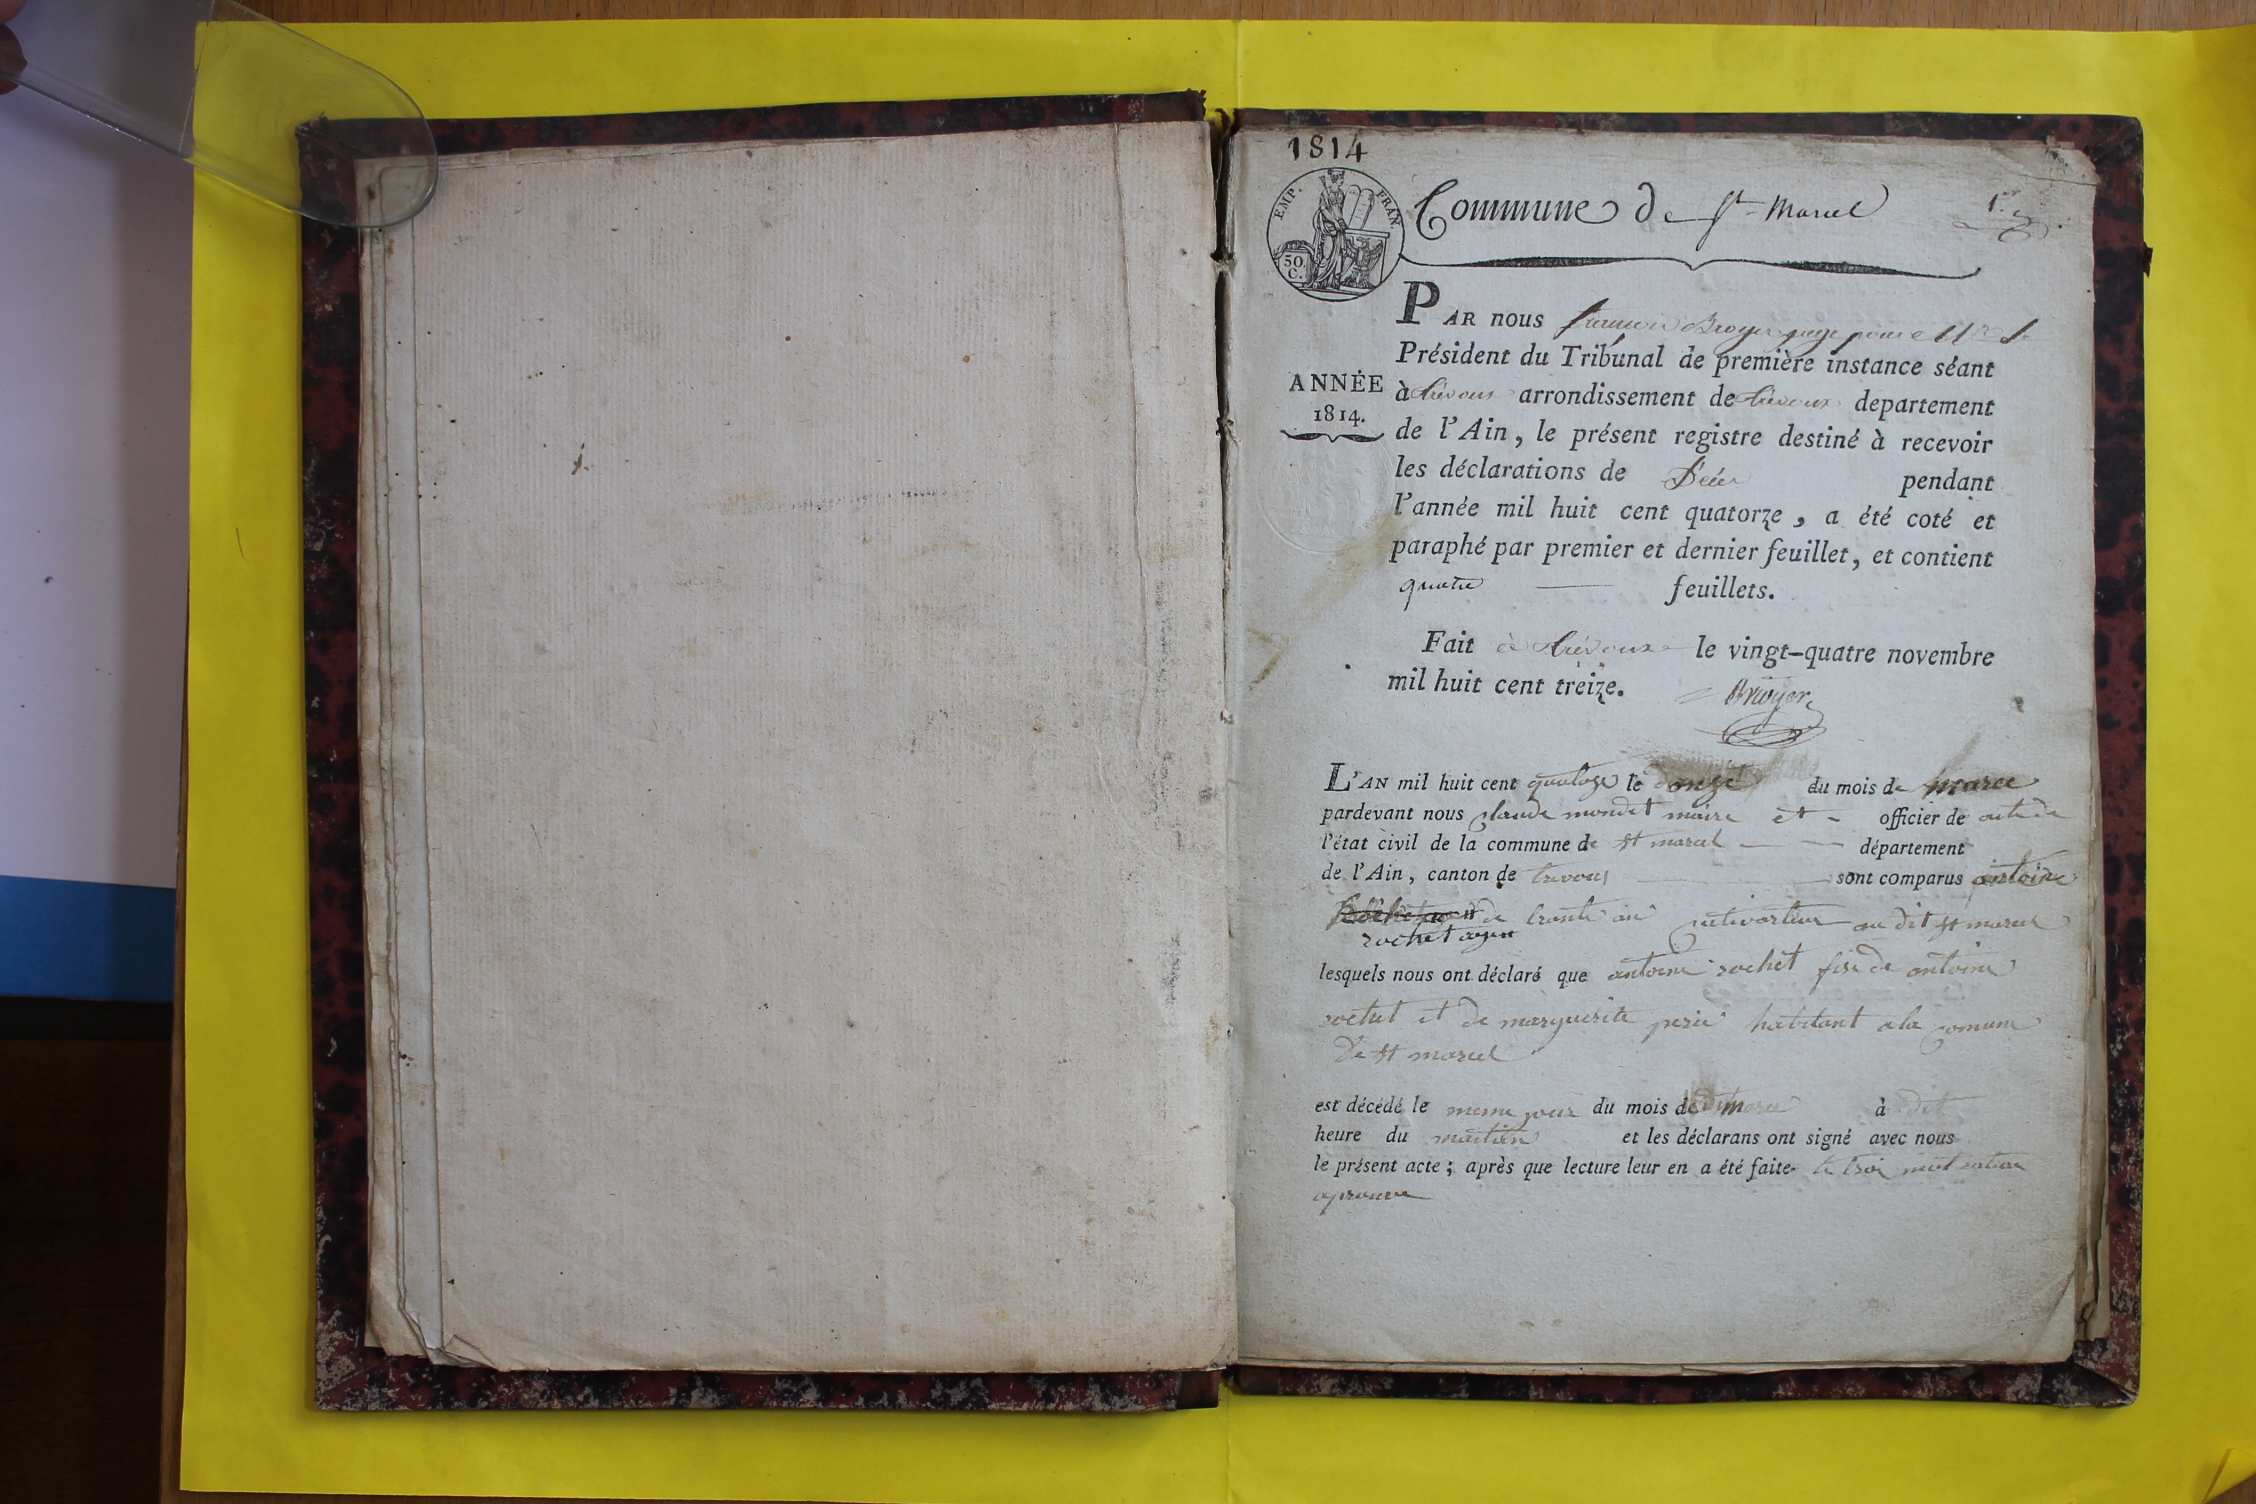 1814
EMP. FRAN.
50. C.
Commune de St Marcel
1er
PAR nous françois Broyer juge pour
Président du Tribunal de première instance séant
ANNÉE
1814.
à trévoux arrondissement de trévoux departement
de l'Ain, le présent registre destiné à recevoir
les déclarations de Décès pendant
l'année mil huit cent quatorze, a été coté et
paraphé par premier et dernier feuillet, et contient
quatre feuillets.
Fait à trévoux le vingt-quatre novembre
mil huit cent treize. Broyer
L'AN mil huit cent quatoze le onze du mois de marce
pardevant nous claude mondet maire et officier de
l'état civil de la commune de st marcel département
de l'Ain, canton de trevoux sont comparus antoine
de trante an cultivateur au dit st marcel
rochet agée
lesquels nous ont déclaré que antoine rochet fise de antoine
rochet et de marguerite perié habitant a la comune
de st marcel
est décédé le meme jour du mois de marce à dit
heure du matien et les déclarans ont signé avec nous
le présent acte; après que lecture leur en a été faite. le troi mot
aprouve